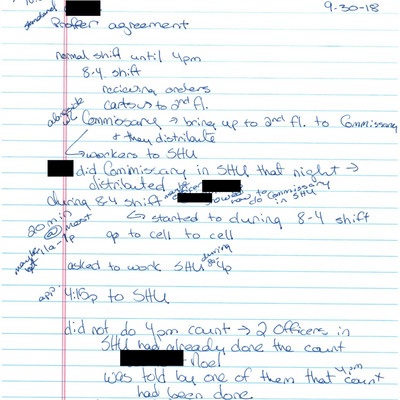 standard
9-30-18
Proffer agreement
normal shift until 4pm
8-4 shift
recieving orders
cartons to 2nd fl.
Commissary → bring up to 2nd fl. to Commissary
+ they distribute
↳ workers to SHU
did Commissary in SHU that night →
distributed
during 8-4 shift
how to Commissary
now do in SHU
↳ started to during 8-4 shift
20 min
@ most
11a-1p
go to cell to cell
maybe
asked to work SHU during 4p
app 4:15p to SHU
did not do 4pm count → 2 officers in
SHU had already done the count
Noel
was told by one of them that 4pm count
had been done